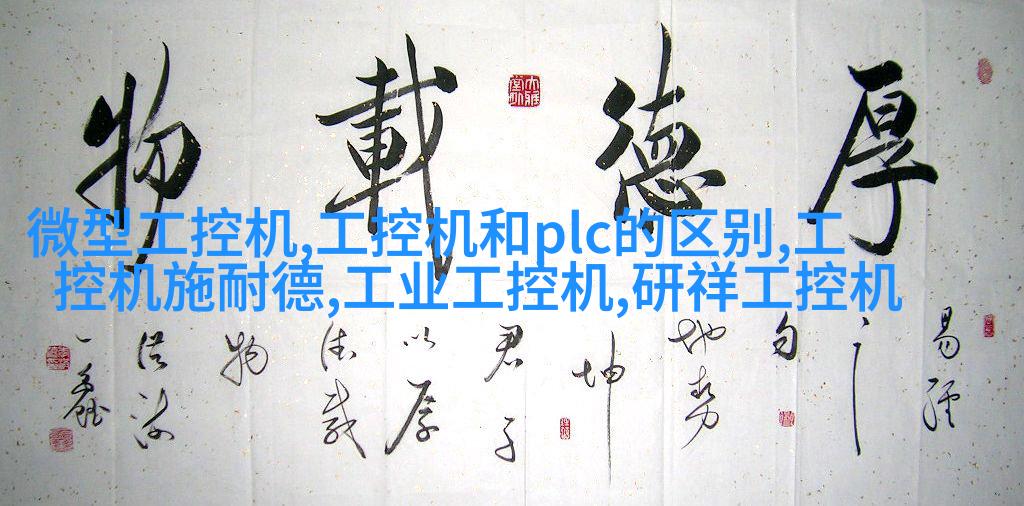 厚德載物
微型工控机,工控机和plc的区别,工
控机施耐德,工业工控机,研祥工控机
易經
之
句
地势
坤
君子
以厚
德载
物